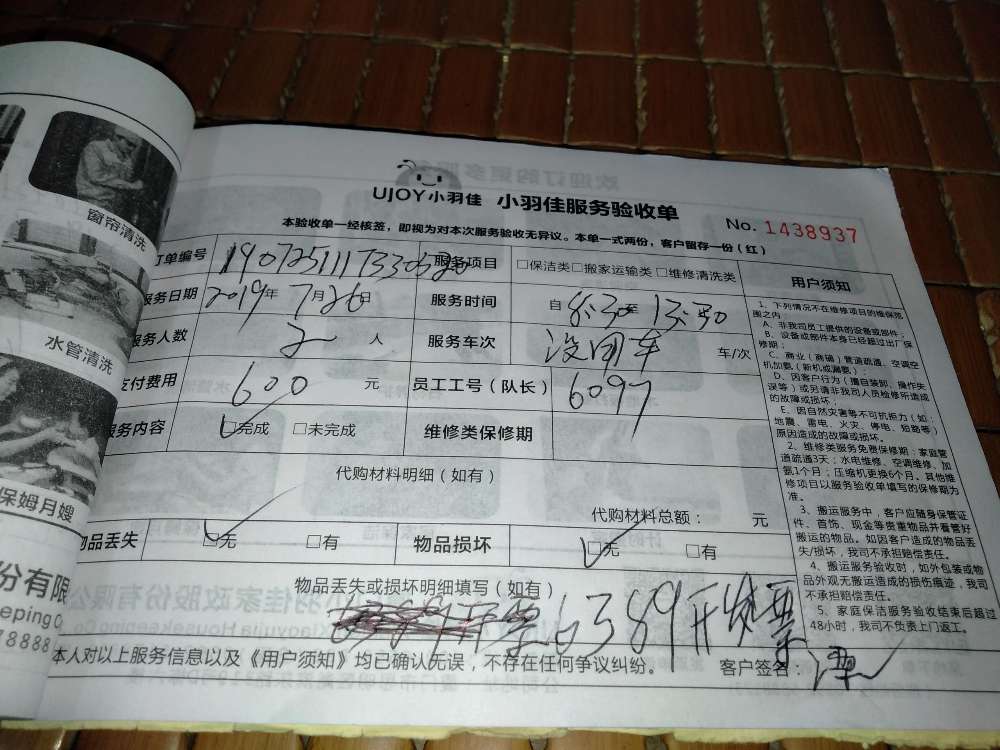 窗帘清洗
水管清洗
保姆月嫂
份有限
eeping Co
78888
UJOY小羽佳 小羽佳服务验收单
No. 1438937
本验收单一经核签，即视为对本次服务验收无异议。本单一式两份，客户留存一份（红）
订单编号
服务项目 □保洁类□搬家运输类□维修清洗类
服务日期 2019年 7月26日 服务时间 自 8:30至 13:30
服务人数 2 人 服务车次 没用车 车/次
支付费用 600 元 员工工号（队长） 6097
服务内容 □完成 □未完成 维修类保修期
代购材料明细（如有）
代购材料总额： 元
物品丢失 □无 □有 物品损坏 □无 □有
物品丢失或损坏明细填写（如有）
6389开发票
本人对以上服务信息以及《用户须知》均已确认无误，不存在任何争议纠纷。 客户签名：
用户须知
1、下列情况不在维修项目的维保范
围之内：
A、非我司员工提供的设备或部件；
B、设备或部件本身已经超过出厂保
修期；
C、商业（商铺）管道疏通、空调空
机加氨（新机或漏氨）；
D、因客户行为（擅自装卸、操作失
误等）或另请非我司人员检修所造成
的故障或损坏；
E、因自然灾害等不可抗拒力（如：
地震、雷电、火灾、停电、短路等）
原因造成的故障或损坏。
2、维修类服务免费保修期：家庭管
道疏通3天；水电维修、空调维修、加
氨1个月；压缩机更换6个月。其他维
修项目以服务验收单填写的保修期为
准。
3、搬运服务中，客户应随身保管证
件、首饰、现金等贵重物品并看管好
搬运的物品。如因客户造成的物品丢
失/损坏，我司不承担赔偿责任。
4、搬运服务验收时，如外包装或物
品外观无搬运造成的损伤痕迹，我司
不承担赔偿责任。
5、家庭保洁服务验收结束后超过
48小时，我司不负责上门返工。